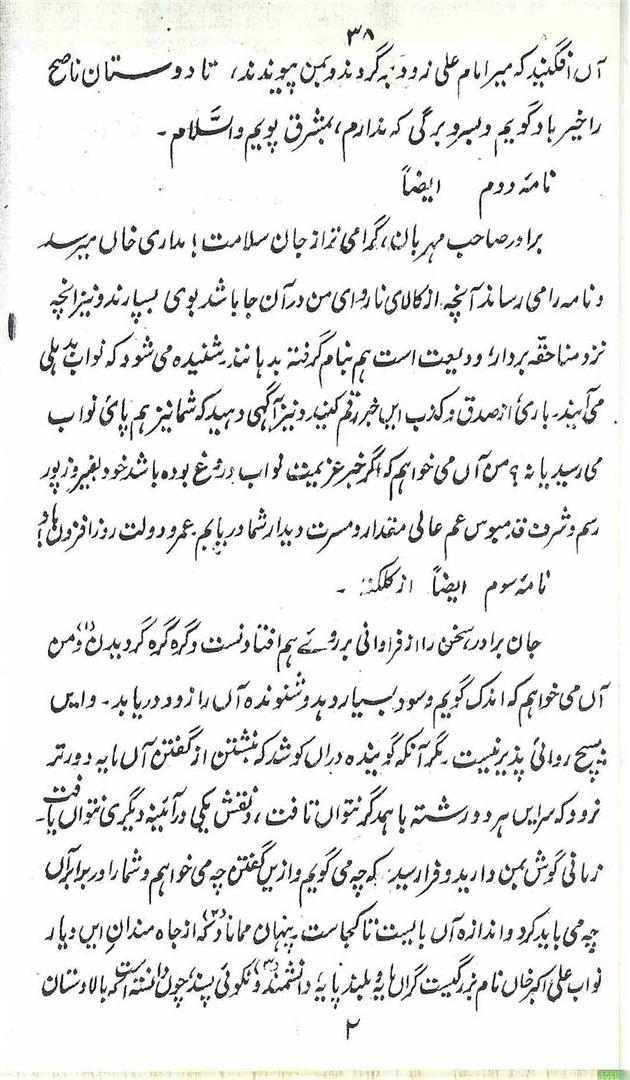 ۳۸
آں افگنید کہ میر امام علی زود بہ گردند و بمن پیوندند، تا دوستان ناصح
را خیر باد گویم و بسر و برگی کہ مدارم، بمشرق پویم والسّلام۔
نامہ دوم ایضاً
برادر صاحب مہربان، گرامی تر از جان سلامت! مداری خاں میرسد
و نامہ را می رساند آنچہ از کالای ناروای من در آن جا باشد بوی بسپارند و نیز انچہ
نزد منا حقّہ بردار ودیعت است ہم بنام گرفتہ بدہانند۔ شنیدہ می شود کہ نواب بدہلی
می آیند۔ باری از صدق و کذب ایں خبر رقم کنید و نیز آگہی دہید کہ شما نیز ہم پائ نواب
می رسید یا نہ؟ من آں می خواہم کہ اگر خبر عزیمت نواب دروغ بودہ باشد خود بفیروزپور
رسم و شرف قدمبوس عم عالی مقدار و مسرت دیدار شما دریابم۔ عمر و دولت روز افزون باد!
نامہ سوم ایضاً از کلکتہ۔
جان برادر، سخن را از فراوانی بر روئے ہم افتادنست و گرہ گرہ گردیدن (۱) و من
آں می خواہم کہ اندک گویم و سود بسیار دہد و شنوندہ آں را زود دریابد۔ و ایں
بہیچ روائی پذیر نیست۔ مگر آنکہ گویندہ دراں کوشد کہ نبشتن از گفتن آں مایہ دورتر
نرود کہ سر ایں ہر دو رشتہ باہمدگر نتواں تافت، و نقش یکی در آئینہ دیگری نتواں یافت۔
زمانی گوش بمن دارید و فرا رسید کہ چہ می گویم و ازیں گفتن چہ می خواہم و شما را در برابر آں
چہ می باید کرد و اندازہ آں بایست تا کجاست۔ پنہان مماناد (۲) کہ از جاہ مندان ایں دیار
نواب علی اکبر خاں نام بزرگیست گراں مایہ و بلند پایہ، دانشمند (۳) و نکوئی پسند، چون دانستہ است کہ بالادستان
۲